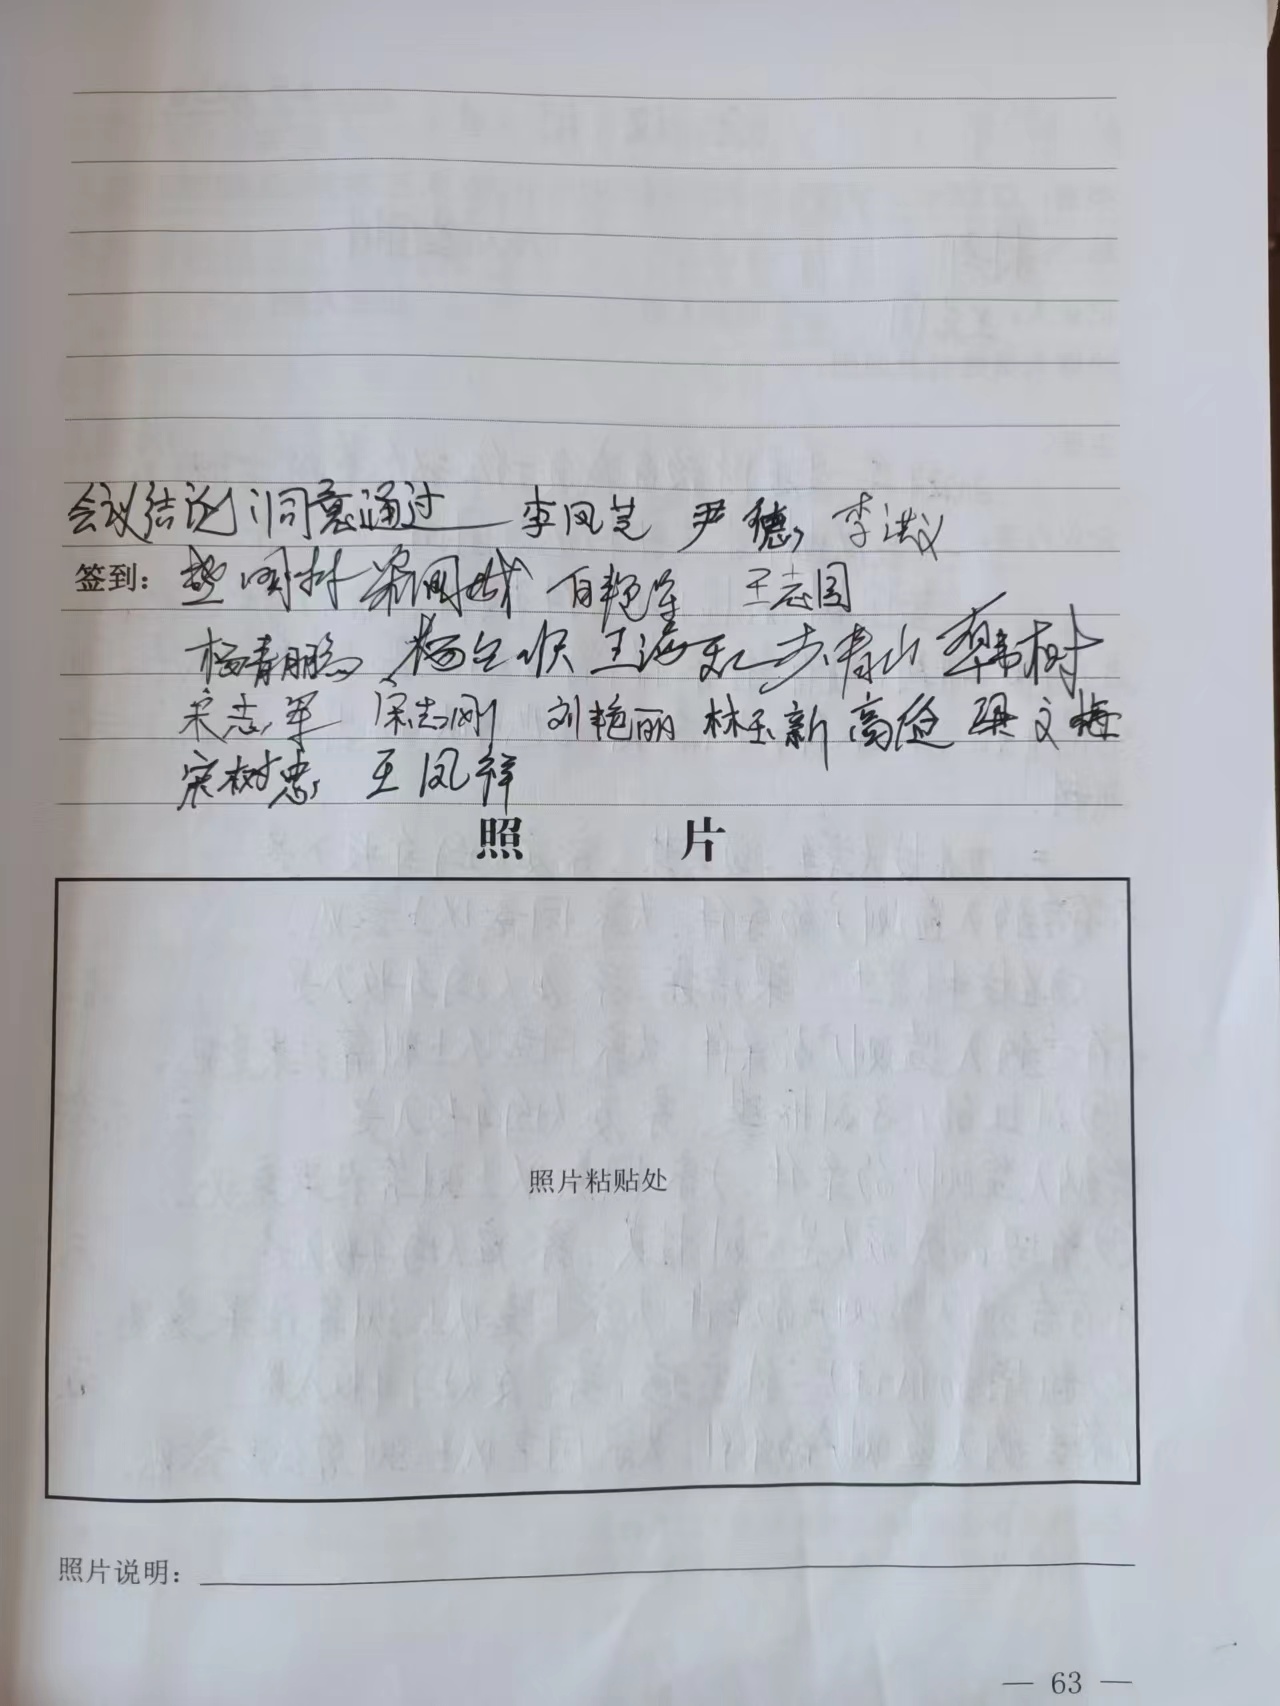 会议结论：同意通过 李凤芝 尹德 李洪义
签到： 楚树 梁国城 白艳军 王志国
杨青鹏 杨立顺 王海 李青山 韩树
宋志军 宋志刚 刘艳丽 林玉新 高俭 梁文梅
宋树忠 王凤祥
照 片
照片粘贴处
照片说明：
— 63 —